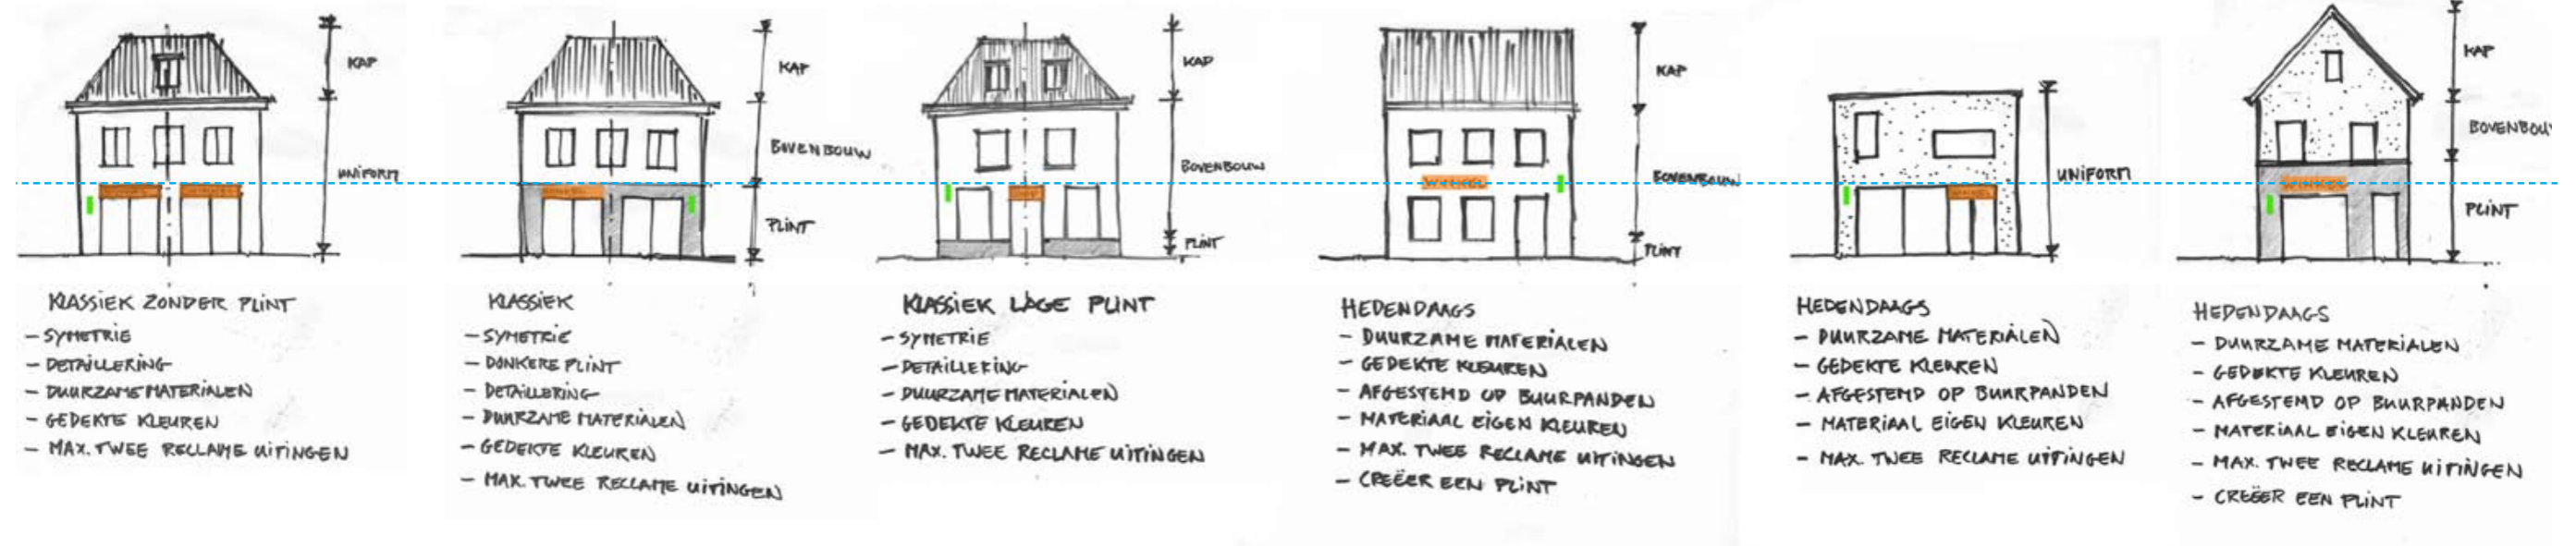 KAP
UNIFORM
KLASSIEK ZONDER PLINT
- SYMETRIE
- DETAILLERING
- DUURZAME MATERIALEN
- GEDEKTE KLEUREN
- MAX. TWEE RECLAME UITINGEN
KAP
BOVENBOUW
PLINT
WINKEL
KLASSIEK
- SYMETRIE
- DONKERE PLINT
- DETAILLERING
- DUURZAME MATERIALEN
- GEDEKTE KLEUREN
- MAX. TWEE RECLAME UITINGEN
KAP
BOVENBOUW
PLINT
KLASSIEK LAGE PLINT
- SYMETRIE
- DETAILLERING
- DUURZAME MATERIALEN
- GEDEKTE KLEUREN
- MAX. TWEE RECLAME UITINGEN
KAP
WINKEL
BOVENBOUW
PLINT
HEDENDAAGS
- DUURZAME MATERIALEN
- GEDEKTE KLEUREN
- AFGESTEMD OP BUURPANDEN
- MATERIAAL EIGEN KLEUREN
- MAX. TWEE RECLAME UITINGEN
- CREËER EEN PLINT
UNIFORM
WINKEL
HEDENDAAGS
- DUURZAME MATERIALEN
- GEDEKTE KLEUREN
- AFGESTEMD OP BUURPANDEN
- MATERIAAL EIGEN KLEUREN
- MAX. TWEE RECLAME UITINGEN
KAP
BOVENBOUW
WINKEL
PLINT
HEDENDAAGS
- DUURZAME MATERIALEN
- GEDEKTE KLEUREN
- AFGESTEMD OP BUURPANDEN
- MATERIAAL EIGEN KLEUREN
- MAX. TWEE RECLAME UITINGEN
- CREËER EEN PLINT